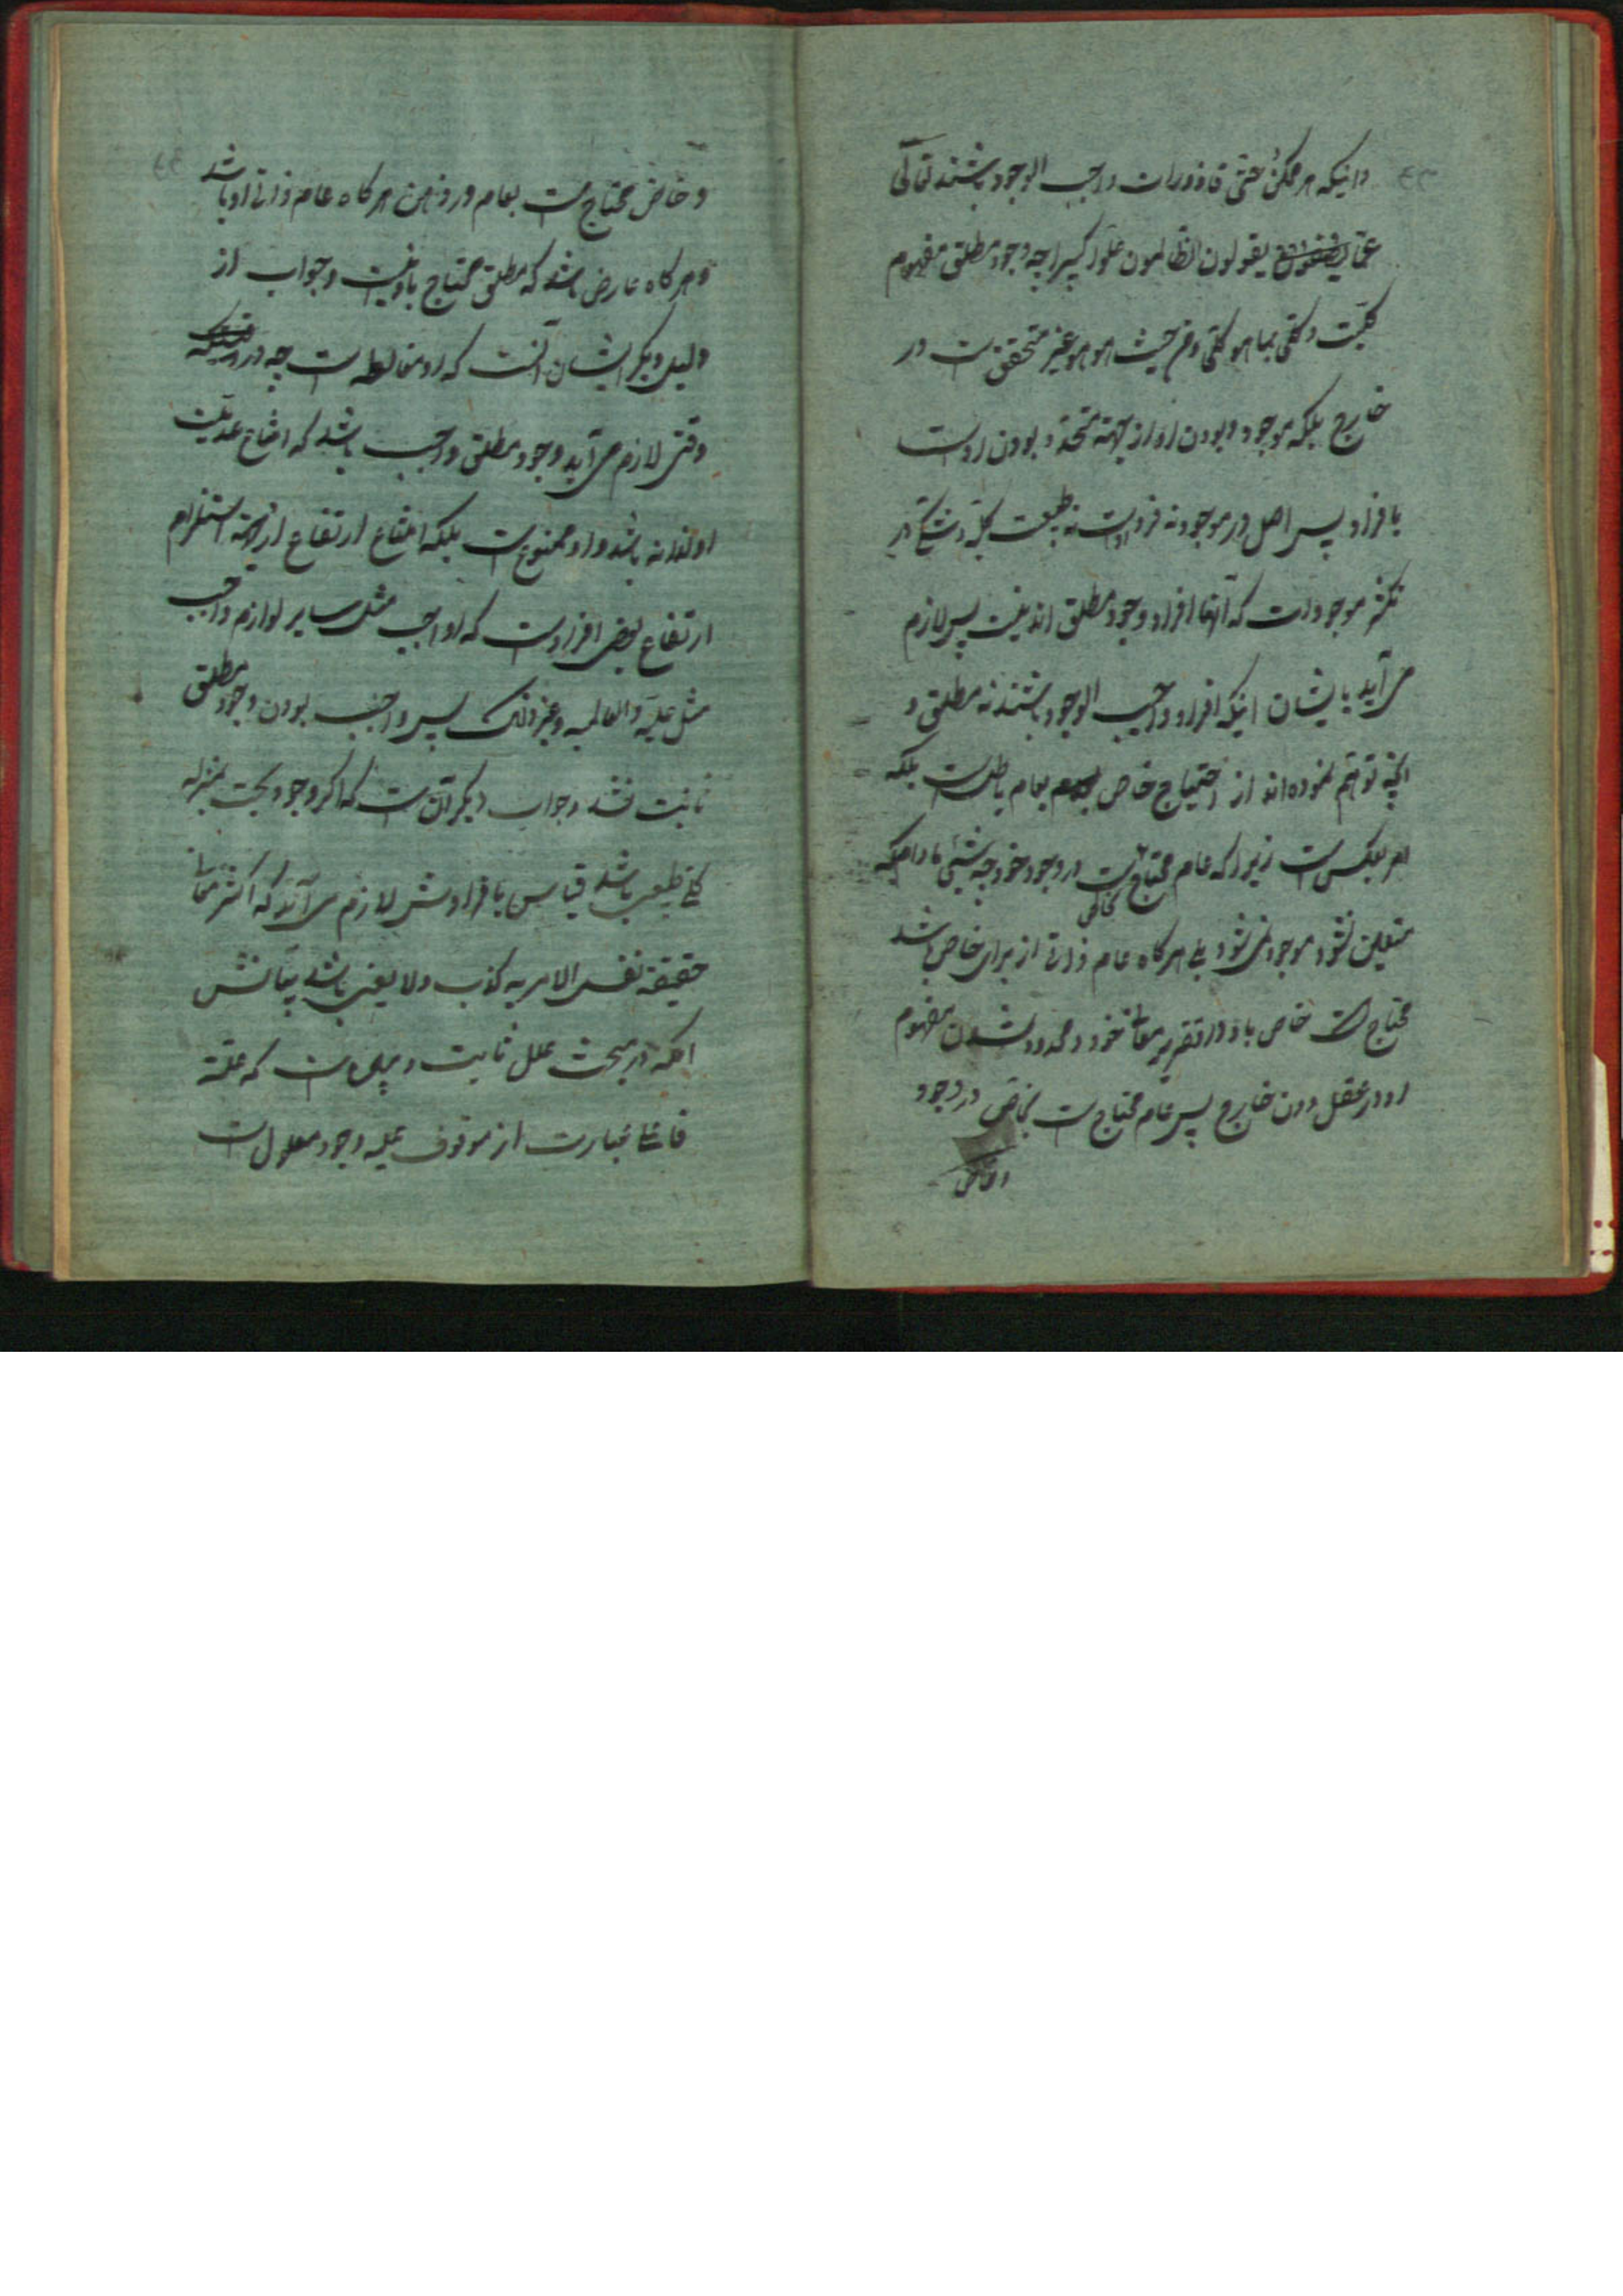 و اینکه هر ممکن حتی قاذورات واجب الوجود باشند تعالی
عما یقولون الظالمون علوا کبیرا چه وجود مطلق مفهوم
کلیت و کلی بما هو کلی و من حیث هو هو غیر متحقق است در
خارج بلکه موجود بودن او از جهة متحد بودن اوست
با افراد پس اصل در موجودیه فرد است نه طبیعت کلی
تکثر موجودات که آنها افراد وجود مطلق اند نیست پس لازم
می آید بایشان اینکه افراد واجب الوجود باشند نه مطلق و
آنچه توهم نموده اند از احتیاج خاص بعام باطل است بلکه
امر بعکس است زیرا که عام محتاج است بخاص در وجود خود چه شیئی مادامیکه
متعین نشود موجود نمی شود بلی هر گاه عام ذاتی از برای خاص باشد
محتاج است خاص باو در تقریر معانی خود و محدود شدن مفهوم
او در عقل دون خارج پس عام محتاج است بخاص در وجود
و خاص
و خاص محتاج است بعام در ذهن هر گاه عام ذاتی او باشد
و هر گاه عارض باشد که مطلق محتاج باو نیست و جواب از
دلیل دیگر ایشان آنست که او مغالطه است چه در
وقتی لازم می آید وجود مطلق واجب باشد که امتناع عدمیت
او لذاته باشد و او ممنوع است بلکه امتناع ارتفاع از جهة استلزام
ارتفاع بعض افراد است که او واجب مثل سایر لوازم واجب
مثل علیة و العالمیه و غیر ذلک پس واجب بودن وجود مطلق
ثابت نشد و جواب دیگر آنست که اگر وجود بحت بمنزله
کلی طبیعی باشد قیاس با افرادش لازم می آید که اکثر
حقیقة نفس الامریه کذب و لا یعنی باشد بیانش
آنکه در مبحث علل ثابت و مبین است که علة
فاعلی عبارت از موقوف علیه وجود معلول است